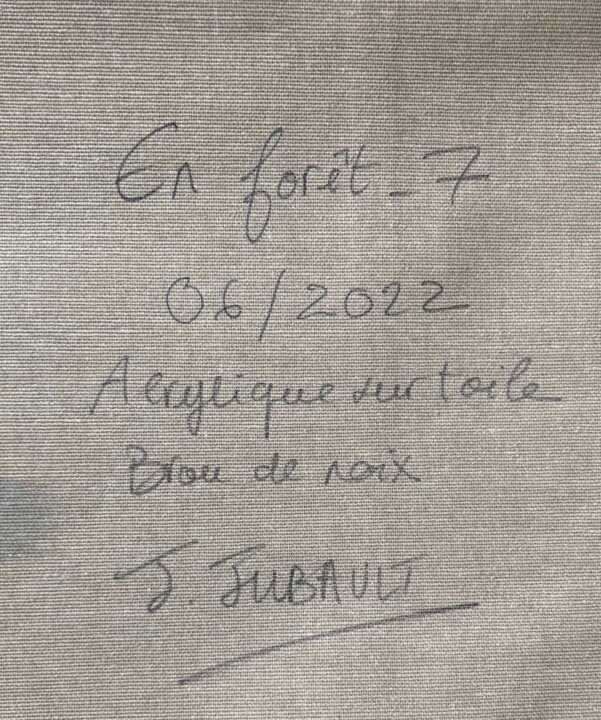 En forêt - 7
06/2022
Acrylique sur toile
Brou de noix
J. JUBAULT